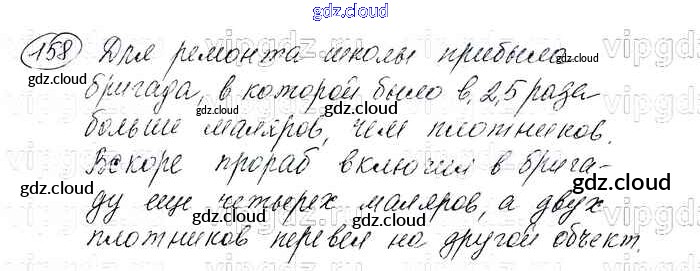 gdz.cloud
158 Для ремонта школы прибыла
бригада, в которой было в 2,5 раза
больше маляров, чем плотников.
Вскоре прораб включил в брига-
ду еще четырех маляров, а двух
плотников перевел на другой объект.
gdz.cloud
gdz.cloud
gdz.cloud
gdz.cloud
gdz.cloud
gdz.cloud
gdz.cloud
gdz.cloud
gdz.cloud
gdz.cloud
gdz.cloud